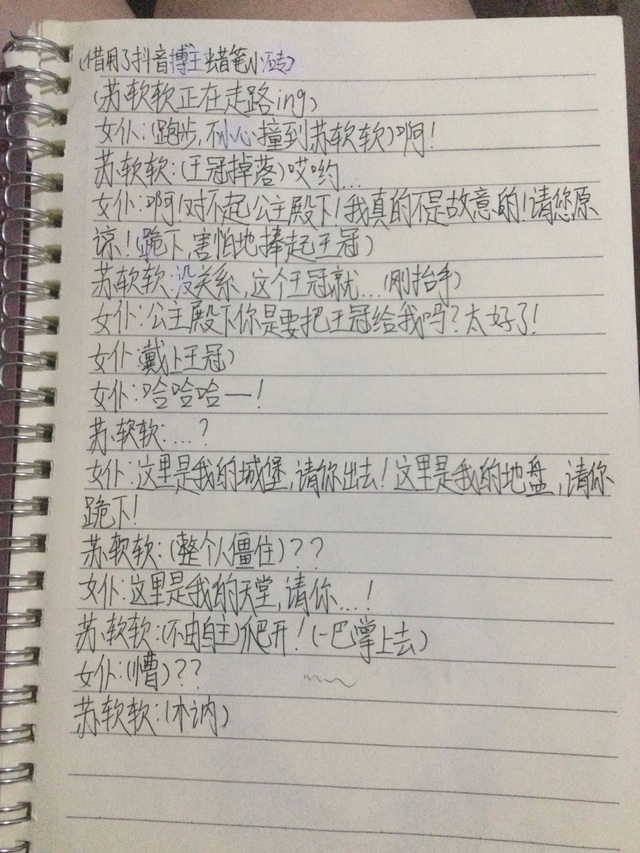 (借用了抖音博主蜡笔小砖)
(苏软软正在走路ing)
女仆:(跑步,不小心撞到苏软软)啊!
苏软软:(王冠掉落)哎哟...
女仆:啊!对不起公主殿下!我真的不是故意的!请您原
谅!(跪下,害怕地捧起王冠)
苏软软:没关系,这个王冠就...(刚抬手)
女仆:公主殿下你是要把王冠给我吗?太好了!
女仆:(戴上王冠)
女仆:哈哈哈一!
苏软软:...?
女仆:这里是我的城堡,请你出去!这里是我的地盘,请你
跪下!
苏软软:(整个人僵住)??
女仆:这里是我的天堂,请你...!
苏软软:(不由自主)爬开!(一巴掌上去)
女仆:(懵)??
苏软软:(木讷)